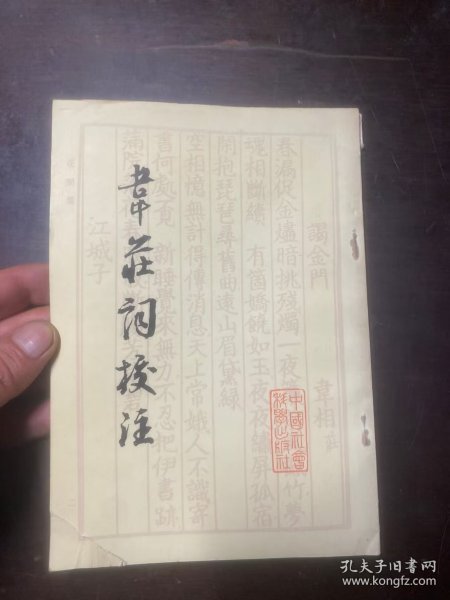 韋莊詞校注
謁金門
韋相
春漏促金燼暗挑殘燭一夜
竹夢
魂相斷續 有箇嬌饒如玉夜夜繡屏孤宿
閑抱琵琶尋舊曲遠山眉黛綠
空相憶無計得傳消息天上常娥人不識寄
書何處覓 新睡覺來無力不忍把伊書跡
滿院
江城子
中國社會
科學出版社
孔夫子旧书网
www.kongfz.com